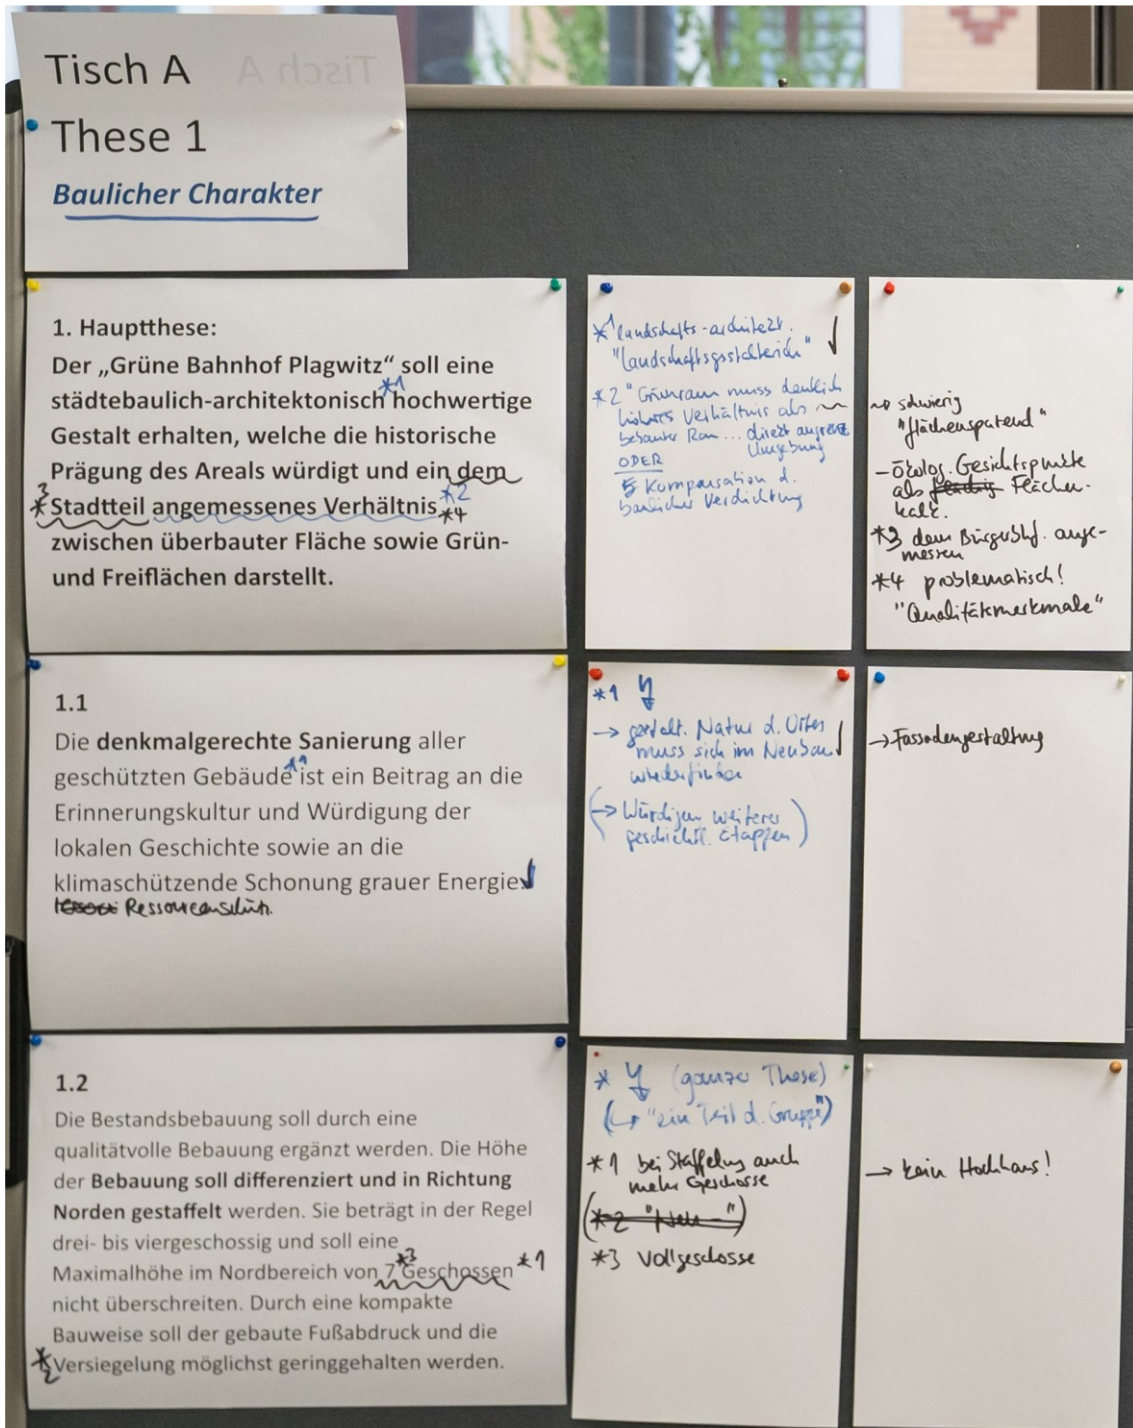 Tisch A
These 1
Baulicher Charakter
1. Hauptthese:
Der „Grüne Bahnhof Plagwitz“ soll eine
*1
städtebaulich-architektonisch hochwertige
Gestalt erhalten, welche die historische
Prägung des Areals würdigt und ein dem
*3 Stadtteil angemessenes Verhältnis *2 *4
zwischen überbauter Fläche sowie Grün-
und Freiflächen darstellt.
*1 landschafts-architekt.
"landschaftsgestalterisch"
*2 "Grünraum muss deutlich
höheres Verhältnis als
bebauter Raum ... direkt angrenz.
Umgebung
ODER
Kompensation d.
baulicher Verdichtung
schwierig
"flächensparend"
- ökolog. Gesichtspunkte
als Flächen-
kalk.
*3 dem Bürgerbhf. ange-
messen
*4 problematisch!
"Qualitätsmerkmale"
1.1
Die denkmalgerechte Sanierung aller
*1
geschützten Gebäude ist ein Beitrag an die
Erinnerungskultur und Würdigung der
lokalen Geschichte sowie an die
klimaschützende Schonung grauer Energie.
Ressourcenschutz.
*1
→ gestalt. Natur d. Ortes
muss sich im Neubau
wiederfinden
(→ Würdigung weiterer
geschichtl. Etappen)
→ Fassadengestaltung
1.2
Die Bestandsbebauung soll durch eine
qualitätvolle Bebauung ergänzt werden. Die Höhe
der Bebauung soll differenziert und in Richtung
Norden gestaffelt werden. Sie beträgt in der Regel
drei- bis viergeschossig und soll eine
*3
Maximalhöhe im Nordbereich von 7 Geschossen *1
nicht überschreiten. Durch eine kompakte
Bauweise soll der gebaute Fußabdruck und die
*2 Versiegelung möglichst geringgehalten werden.
* (ganze These)
(↳ "ein Teil d. Gruppe")
*1 bei Staffelung auch
mehr Geschosse
(*2 "Neu-")
*3 Vollgeschosse
→ kein Hochhaus!